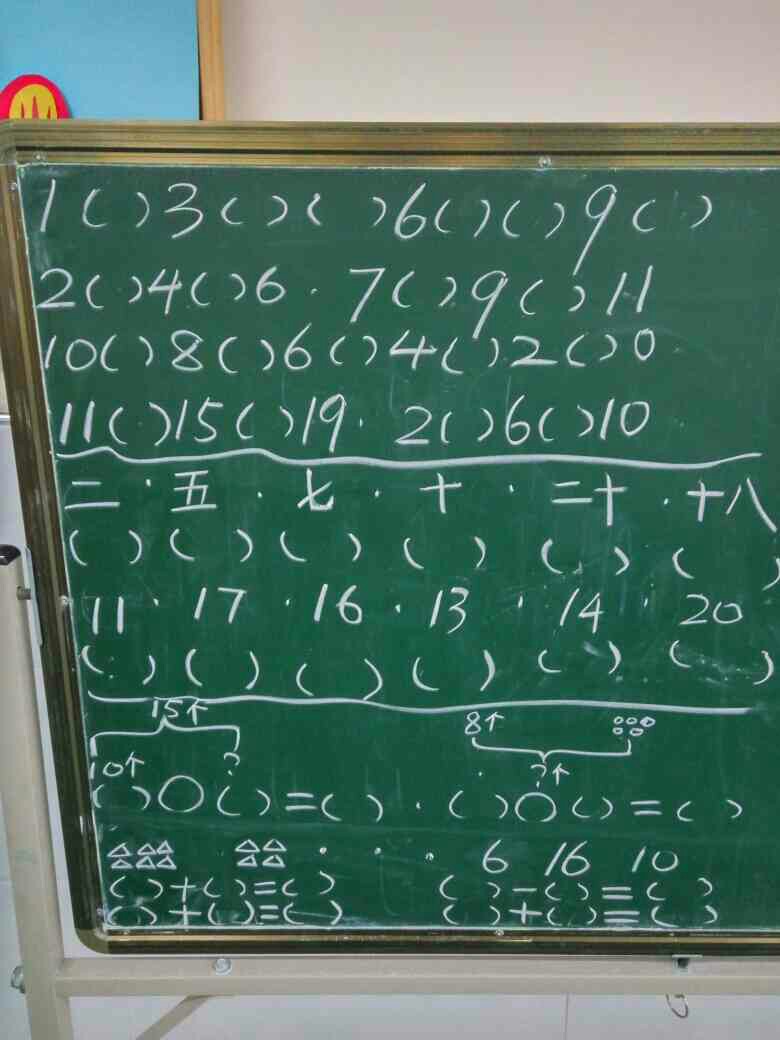 1 ( ) 3 ( ) ( ) 6 ( ) ( ) 9 ( )
2 ( ) 4 ( ) 6 · 7 ( ) 9 ( ) 11
10 ( ) 8 ( ) 6 ( ) 4 ( ) 2 ( ) 0
11 ( ) 15 ( ) 19 · 2 ( ) 6 ( ) 10
二 · 五 · 七 · 十 · 二十 · 十八
( ) ( ) ( ) ( ) ( ) ( )
11 · 17 · 16 · 13 · 14 20
( ) ( ) ( ) ( ) ( ) ( )
15个 8个
10个 ? ?个
( ) ○ ( ) = ( ) · ( ) ○ ( ) = ( )
6 16 10
( ) + ( ) = ( ) ( ) - ( ) = ( )
( ) + ( ) = ( ) ( ) + ( ) = ( )